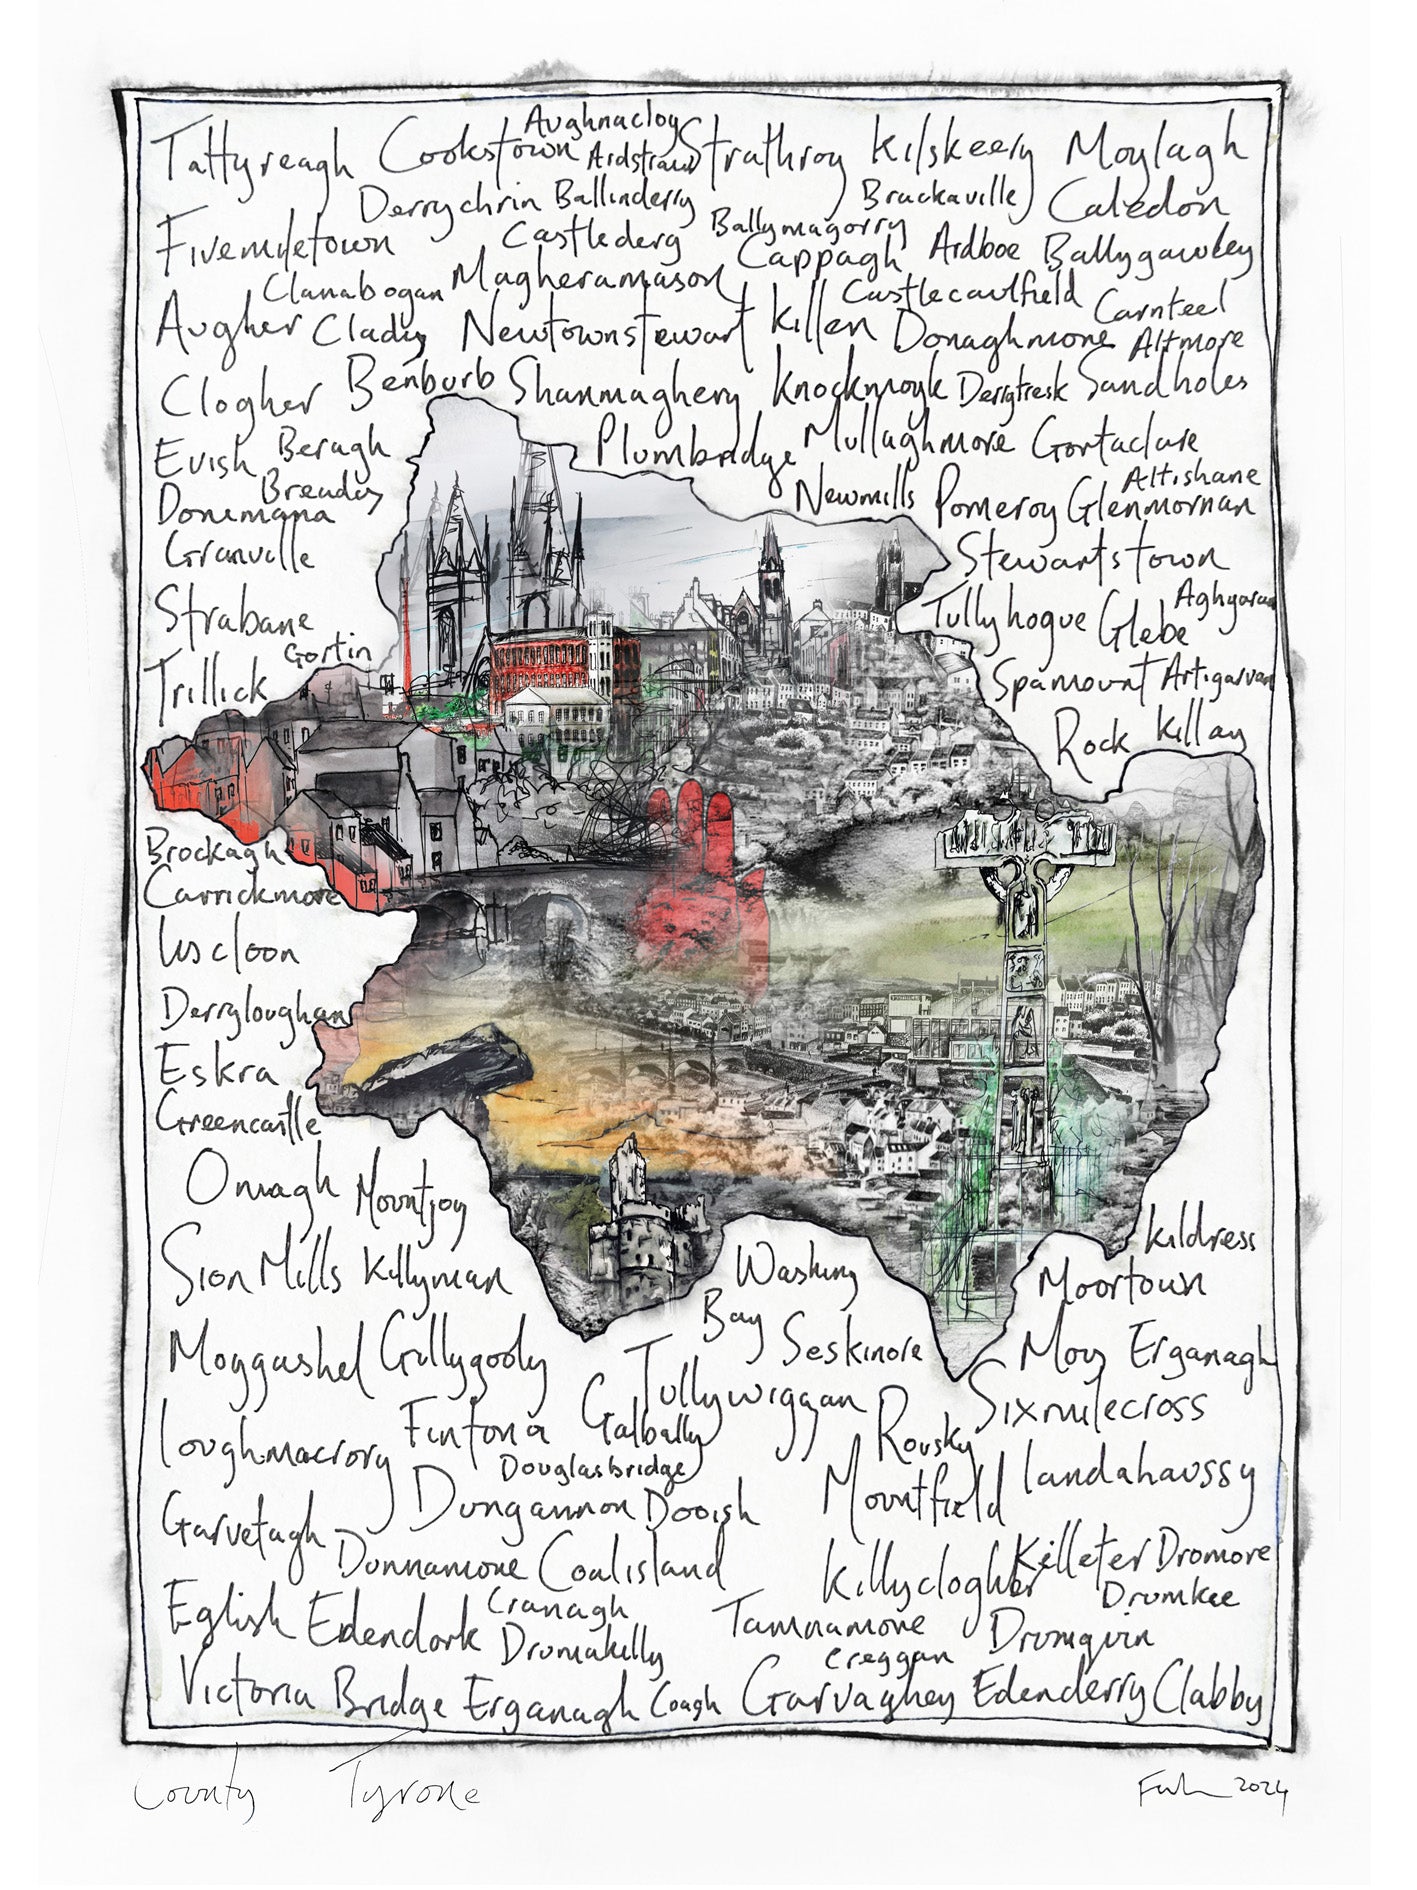 Aughnacloy
Tattyreagh Cookstown Ardstraw Strathroy Kilskeery Moylagh
Derrychrin Ballinderry Brackaville Caledon
Fivemiletown Castlederg Ballymagorry
Cappagh Ardboe Ballygawley
Clanabogan Magheramason Castlecaulfield Carnteel
Augher Clady Newtownstewart Killen Donaghmore Altmore
Clogher Benburb Shanmaghery Knockmoyle Derrytresk Sandholes
Evish Beragh Plumbridge Mullaghmore Gortaclare
Bready Newmills Pomeroy Glenmornan Altishane
Donemana
Granville Stewartstown
Strabane Tullyhogue Glebe Aghyaran
Gortin
Trillick Spamount Artigarvan
Rock Killay
Brockagh
Carrickmore
Liscloon
Derryloughan
Eskra
Greencastle
Omagh Mountjoy
Kildress
Sion Mills Killyman Washing
Bay
Moortown
Moygashel Gillygooly Seskinore Moy Erganagh
Tullywiggan Sixmilecross
Loughmacrory Fintona Galbally Rousky
Douglasbridge Landahaussy
Garvetagh Dungannon Dooish Mountfield
Dunnamore Coalisland Killyclogher Killeter Dromore
Drumkee
Eglish Edendork Cranagh Tamnamore Drumquin
Drumakilly Creggan
Victoria Bridge Erganagh Coagh Garvaghey Edenderry Clabby
County Tyrone
2024